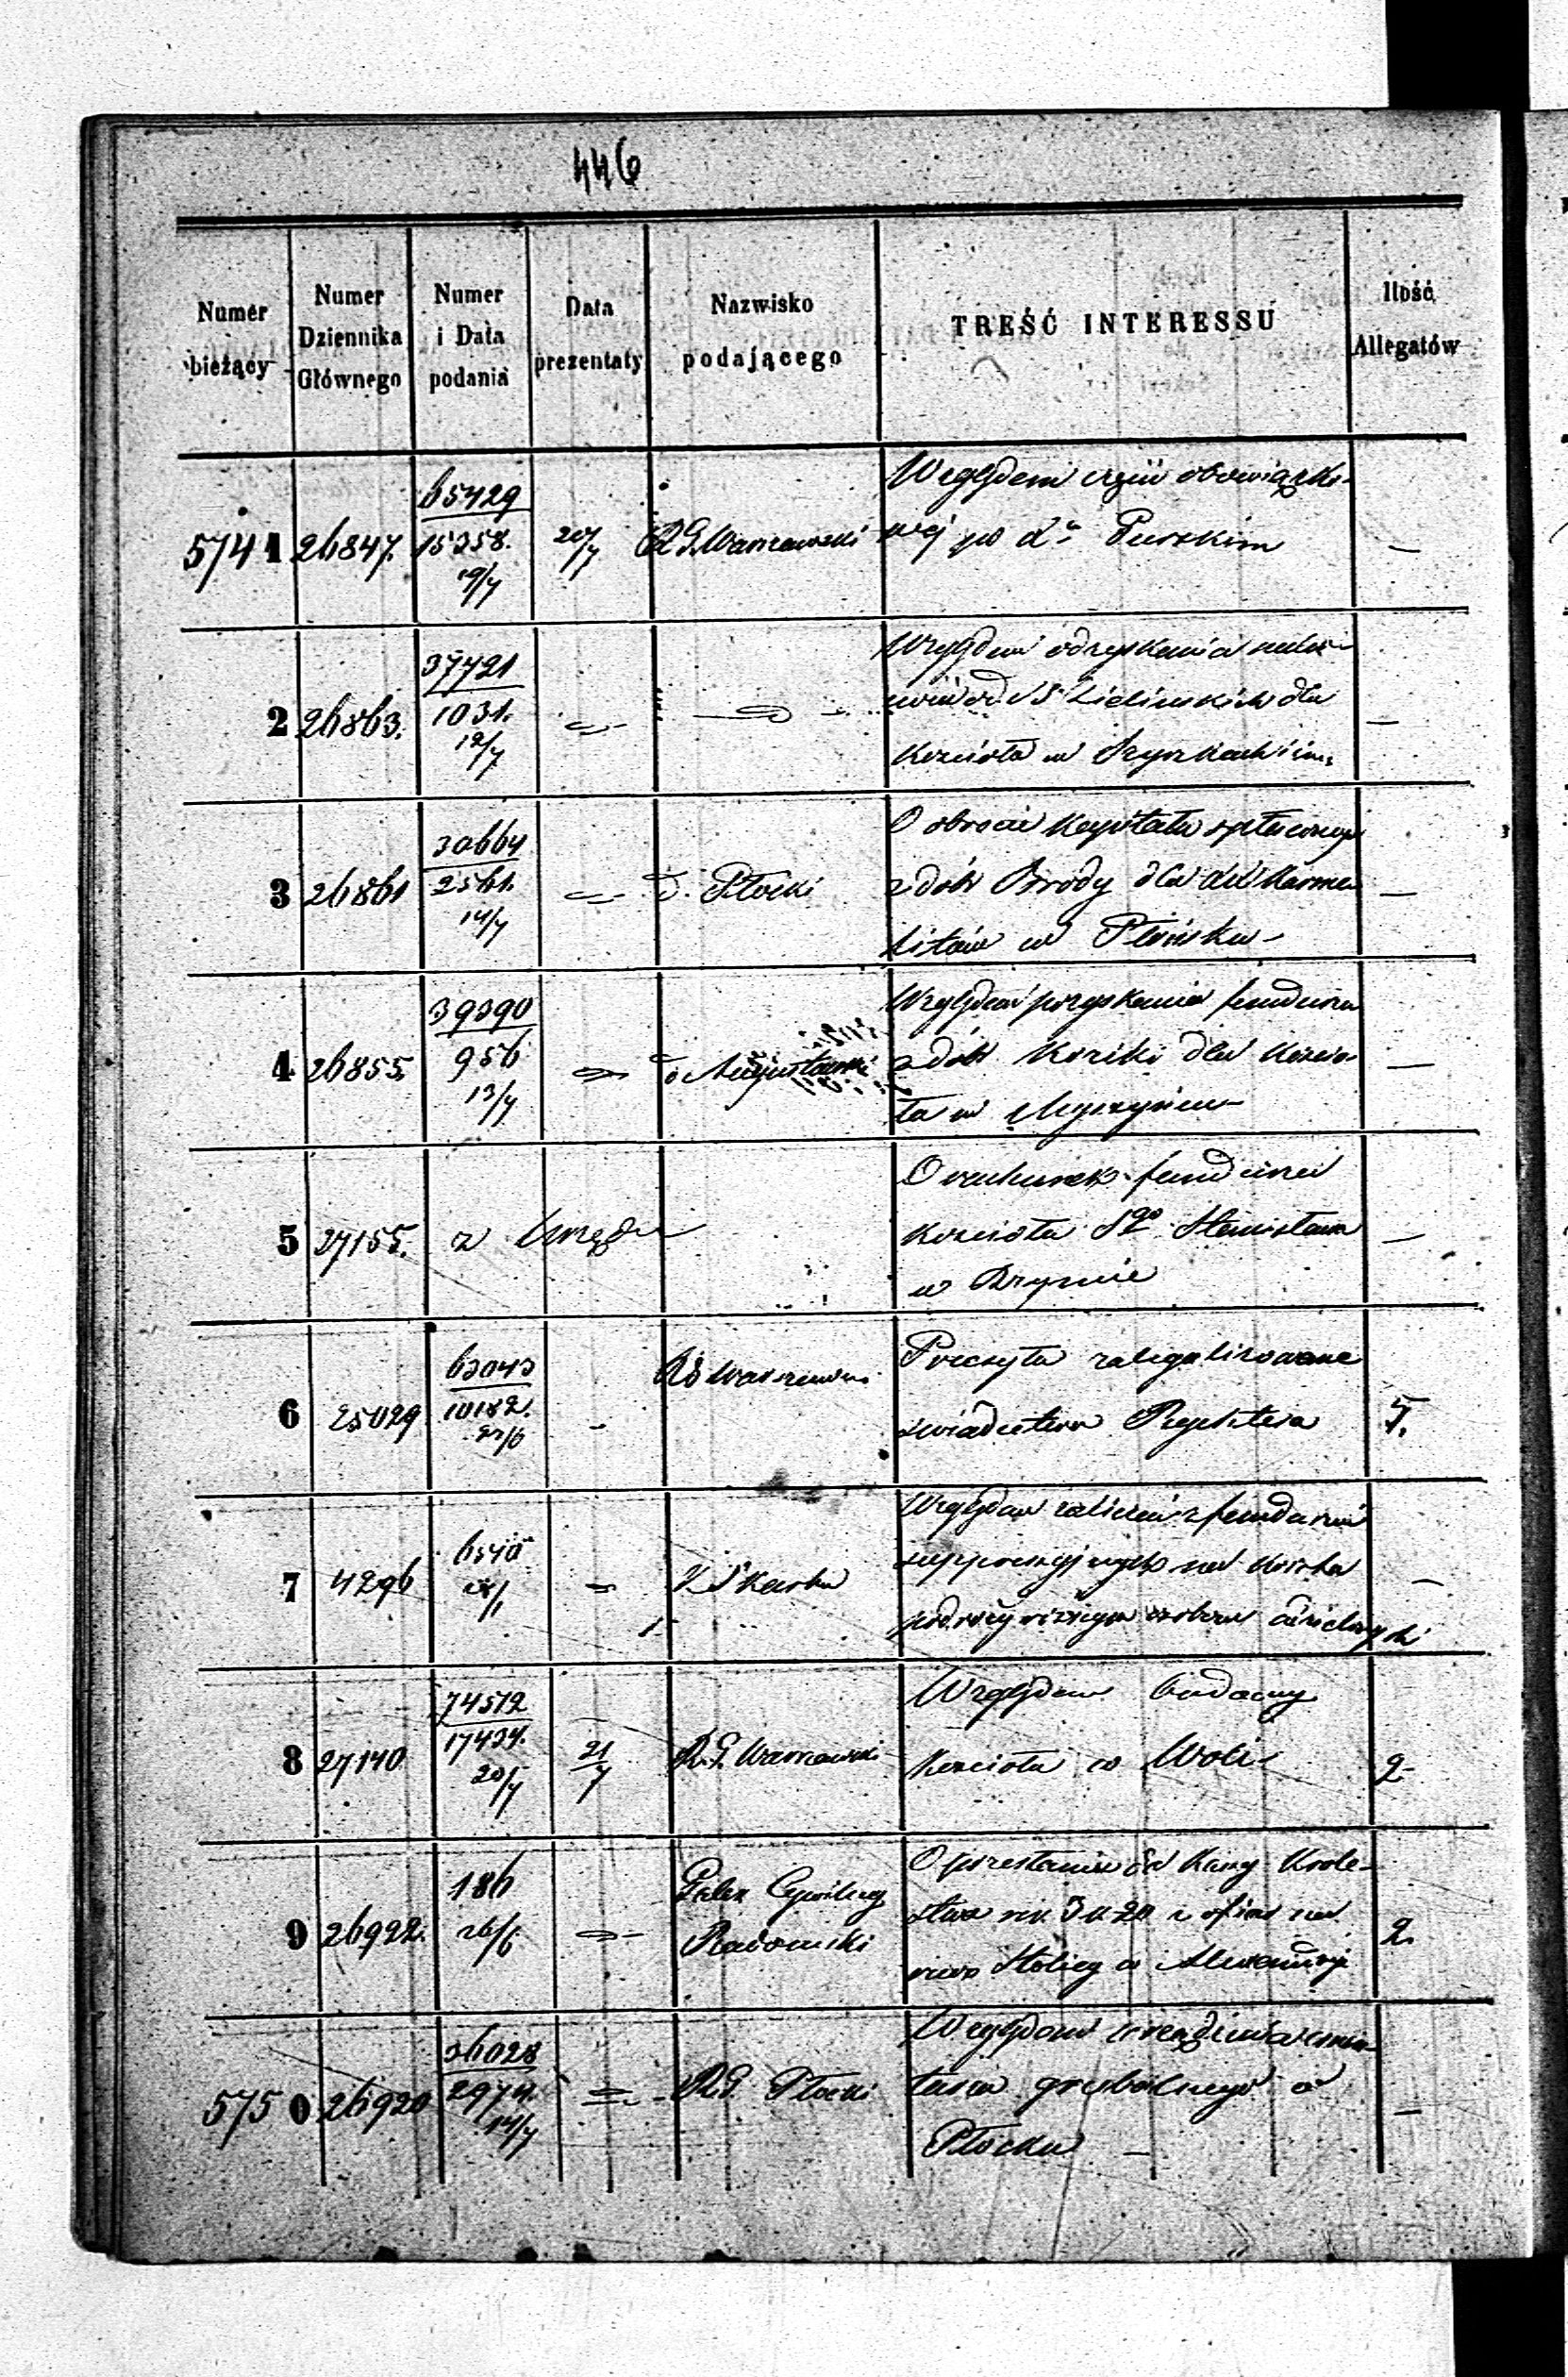 446
Numer bieżący | Numer Dziennika Głównego | Numer i Data podania | Data prezentaty | Nazwisko podającego | TREŚĆ INTERESSU | Ilość Allegatów
5741 | 26847. | 65429 / 15358. 19/7 | 20/7 | R. G. Warszawski | Względem części obowiązko-
wej po Xu Purskim | —
2 | 26863. | 37421 / 1031. 12/7 | — | — | Względem odzyskania
od Zielińskich dla
Kościoła w | —
3 | 26861 | 30664 / 2561. 14/7 | — | Płocki | O obrocie Kapitału spłaconego
z dóbr Brody dla XX Karme-
litów w Płońsku | —
4 | 26855. | 39390 / 956 13/7 | — | Augustowski | Względem pozyskania funduszu
z dóbr Koziki dla Kościo-
ła w Myszyńcu | —
5 | 27155. | z Urzędu | O rachunek funduszu
Kościoła Sgo Stanisława
w Rzymie | —
6 | 25029 | 63043 / 10182. 22/6 | - | RG Warszawski | Przesyła zalegalizowane
świadectwo Rychtera | 5.
7 | 4296 | 6540 /1 | = | K. Skarbu | Względem zaliczeń z funduszów
suppressyjnych na koszta
podróży | —
8 | 27140 | 74512 / 17434. 20/7 | 21/7 | R. G. Warszawski | Względem budowy
Kościoła w Woli | 2
9 | 26922. | 186 26/6 | = | Guber. Cywilny
Radomski | O przesłaniu do Kassy Króle-
stwa rs. 3 k. 20 z ofiar na
rzecz Stolicy w Alexandryi | 2
5750 | 26920 | 36028 / 2974. 14/7 | = | R. G. Płocki | Względem urządzenia cmen-
tarza grzebalnego w
Płocku | —